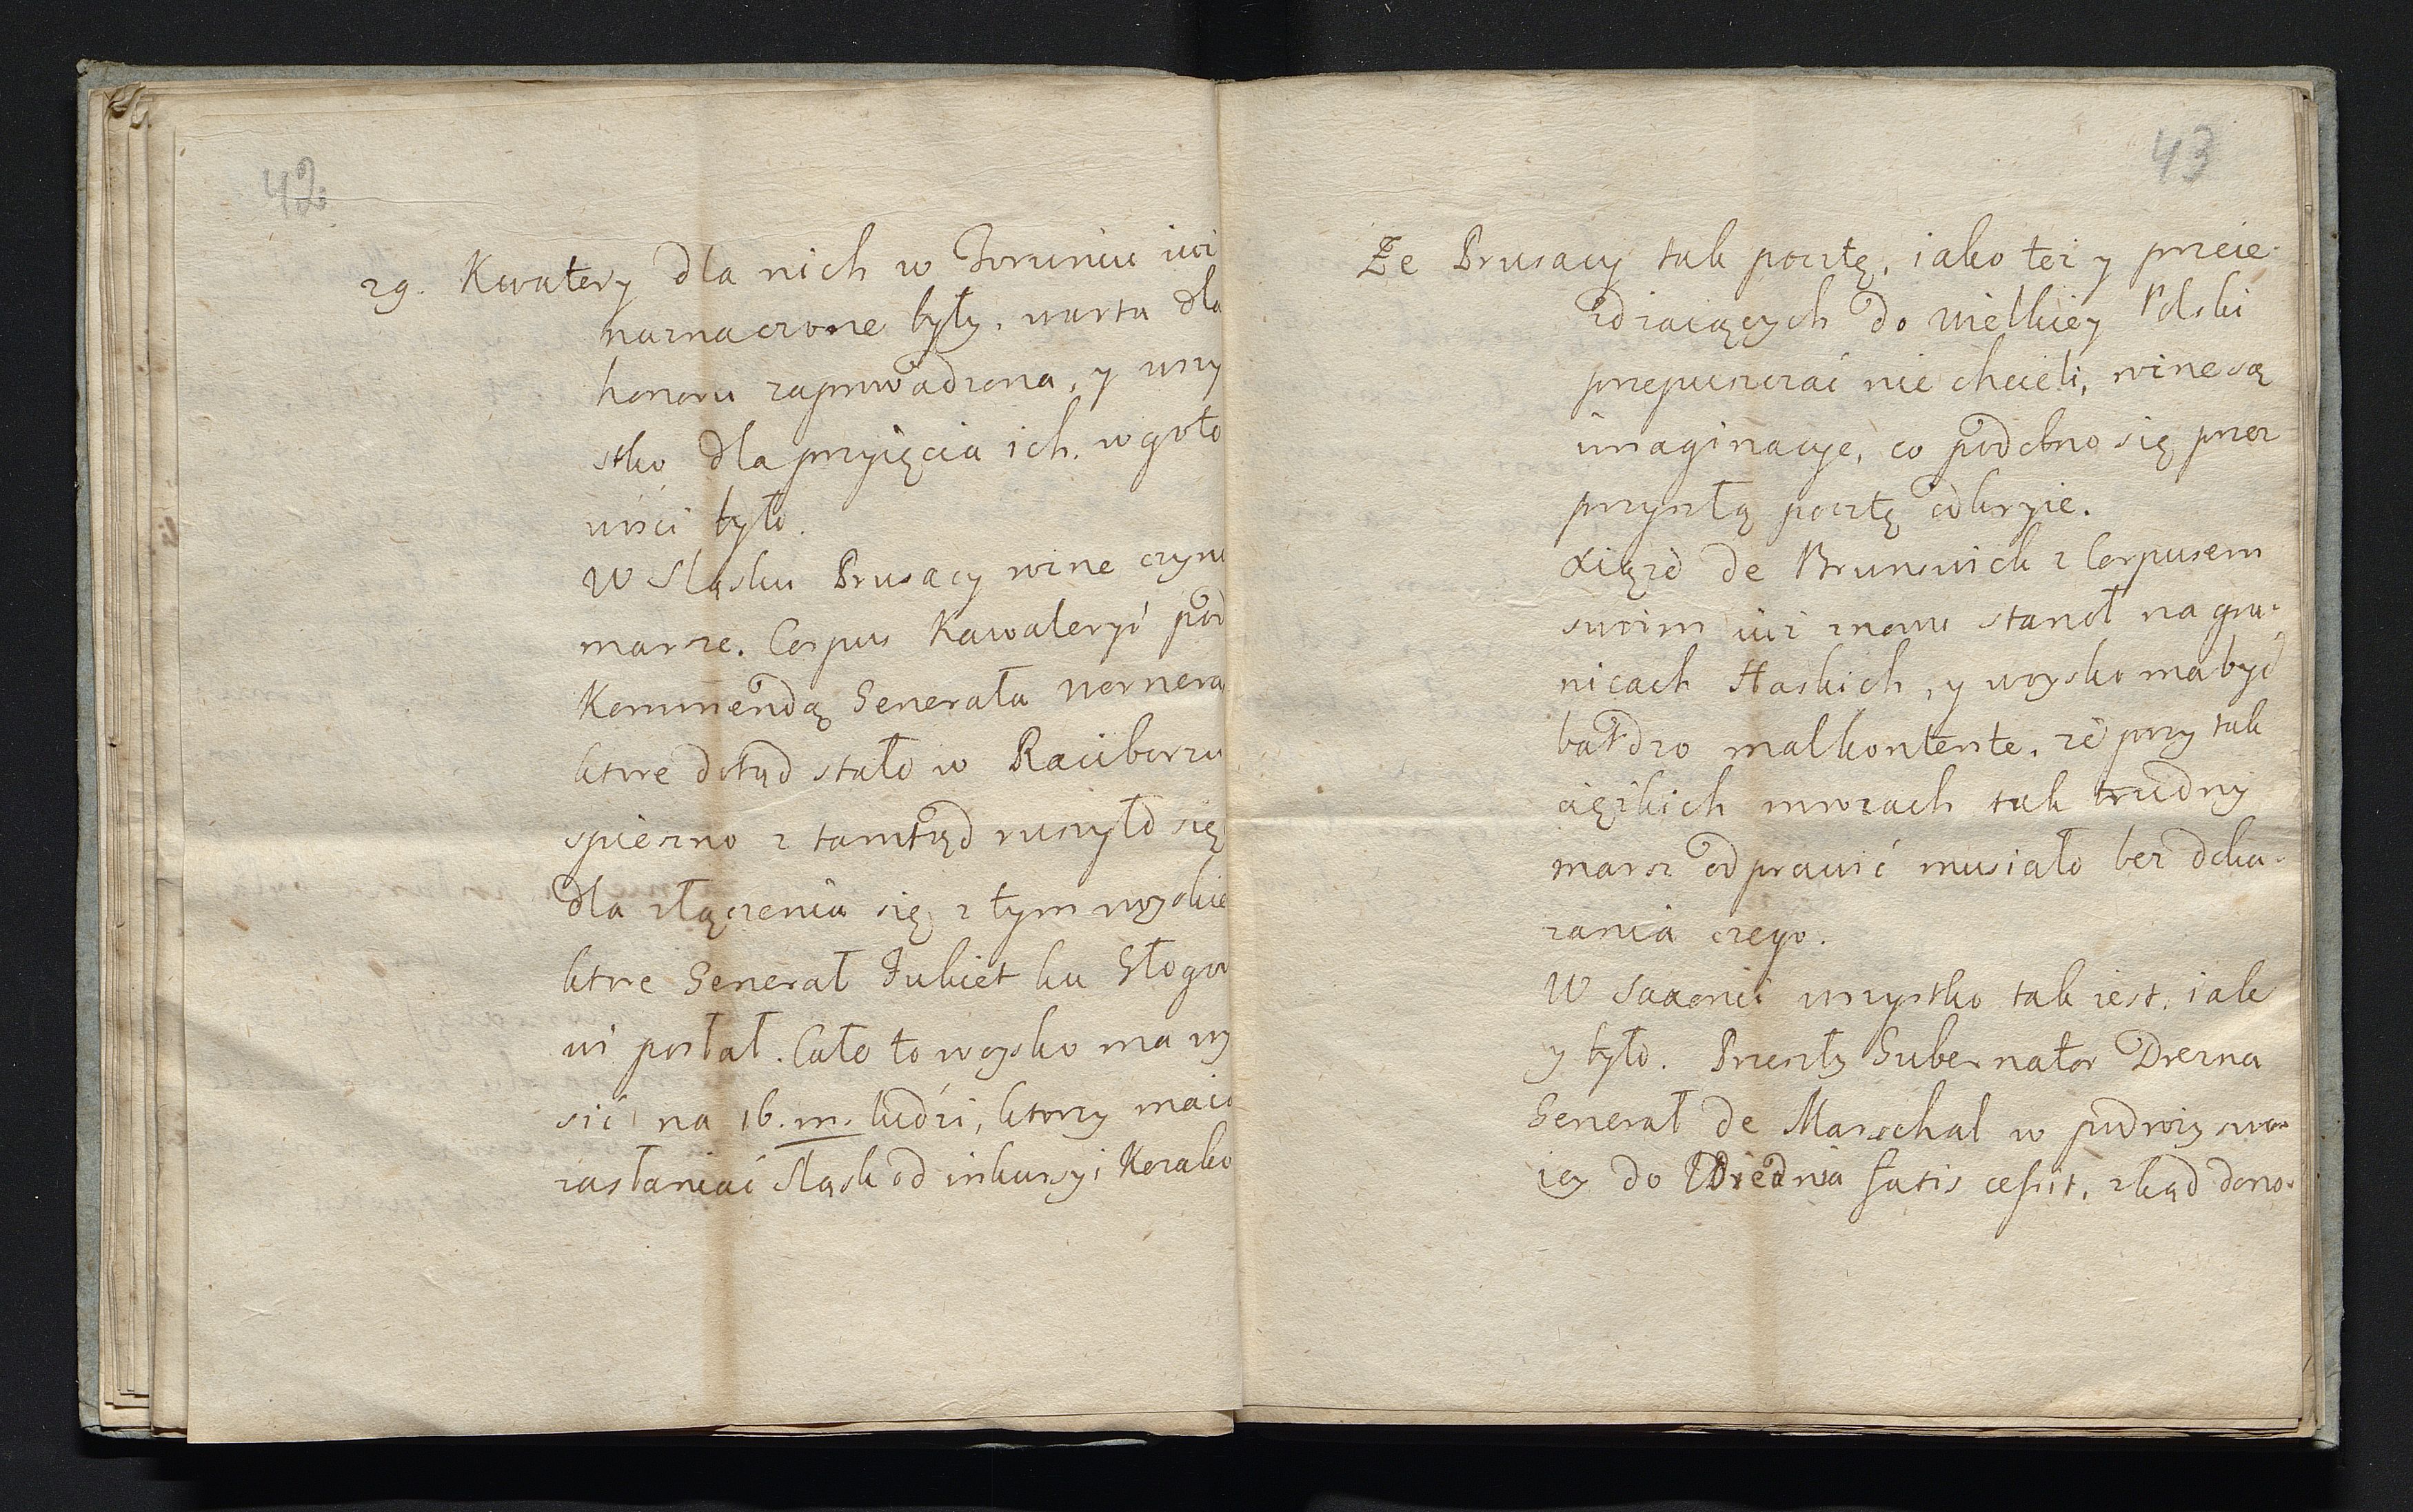 42
29. Kwatery dla nich w Toruniu iuż
naznaczone były, warta dla
honoru zaprowadzona, y wszy
stko dla przyięcia ich w goto
wości było.
W Sląsku Prusacy rożne czyni
marsze. Corpus Kawaleryi pod
Kommendą Generała Wernera
ktore dotąd stało w Raciborzu
spieszno z tamtąd ruszyło się
dla złączenia się z tym woyskie
ktore Generał Fukiet ku Głogo
wi posłał. Cało to woysko ma wy
sić na 16. m. ludzi, ktorzy maią
zasłaniać Sląsk od inkursyi Kozako
43
Że Prusacy tak pocztę, iako też y przeie-
zdzaiących do wielkiey Polski
przepuszczać nie chcieli, rożne są
imaginacye, co podobno się przez
przyszłą pocztę odkryie.
Xiąże de Brunswick z Corpusem
swoim iuż znowu stanoł na gra-
nicach Haskich, y woysko ma być
bardzo malkontente, że przy tak
ciężkich mrozach tak trudny
marsz odprawić musiało bez doka-
zania czego.
W Saxonii wszystko tak iest, iak
y było. Przeszły Gubernator Drezna
Generał de Marschal w podroży swo-
iey do Wiednia fatis cessit, zkąd dono-